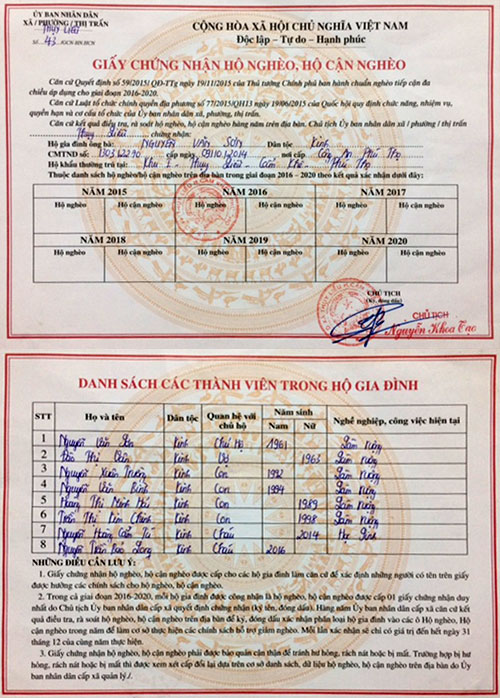 ỦY BAN NHÂN DÂN
XÃ / PHƯỜNG / THỊ TRẤN
Thụy Liễu
Số: 43 /GCN-HN.HCN
CỘNG HÒA XÃ HỘI CHỦ NGHĨA VIỆT NAM
Độc lập - Tự do - Hạnh phúc
GIẤY CHỨNG NHẬN HỘ NGHÈO, HỘ CẬN NGHÈO
Căn cứ Quyết định số 59/2015/ QĐ-TTg ngày 19/11/2015 của Thủ tướng Chính phủ ban hành chuẩn nghèo tiếp cận đa
chiều áp dụng cho giai đoạn 2016-2020.
Căn cứ Luật tổ chức chính quyền địa phương số 77/2015/QH13 ngày 19/06/2015 của Quốc hội quy định chức năng, nhiệm vụ,
quyền hạn và cơ cấu tổ chức của Ủy ban nhân dân xã, phường, thị trấn.
Căn cứ kết quả điều tra, rà soát hộ nghèo, hộ cận nghèo hàng năm trên địa bàn. Chủ tịch Ủy ban nhân dân xã / phường / thị trấn
Thụy Liễu chứng nhận:
Hộ gia đình ông bà: NGUYỄN VĂN SƠN Dân tộc: Kinh
CMTND số: 130312290 cấp ngày 09/10/2014 nơi cấp Công An Phú Thọ
Hộ khẩu thường trú tại: Khu I - Thụy Liễu - Cẩm Khê - Phú Thọ
Thuộc danh sách hộ nghèo/hộ cận nghèo trên địa bàn trong giai đoạn 2016 – 2020 theo kết quả xác nhận dưới đây:
NĂM 2015 NĂM 2016 NĂM 2017
Hộ nghèo Hộ cận nghèo Hộ nghèo Hộ cận nghèo Hộ nghèo Hộ cận nghèo
NĂM 2018 NĂM 2019 NĂM 2020
Hộ nghèo Hộ cận nghèo Hộ nghèo Hộ cận nghèo Hộ nghèo Hộ cận nghèo
CHỦ TỊCH
(Ký, đóng dấu)
CHỦ TỊCH
Nguyễn Khoa Tạo
DANH SÁCH CÁC THÀNH VIÊN TRONG HỘ GIA ĐÌNH
STT Họ và tên Dân tộc Quan hệ với chủ hộ Năm sinh Nghề nghiệp, công việc hiện tại
Nam Nữ
1 Nguyễn Văn Sơn Kinh Chủ Hộ 1961 Làm ruộng
2 Thị Kinh Vợ 1963 Làm ruộng
3 Nguyễn Xuân Trường Kinh Con 1992 Làm ruộng
4 Nguyễn Văn Bình Kinh Con 1994 Làm ruộng
5 Hoàng Thị Minh Kinh Con 1989 Làm ruộng
6 Trần Thị Kim Chinh Kinh Con 1998 Làm ruộng
7 Nguyễn Hoàng Cẩm Tú Kinh Cháu 2014 Học Sinh
8 Nguyễn Trần Bảo Long Kinh Cháu 2016
NHỮNG ĐIỀU CẦN LƯU Ý:
1. Giấy chứng nhận hộ nghèo, hộ cận nghèo được cấp cho các hộ gia đình làm căn cứ để xác định những người có tên trên giấy
được hưởng các chính sách cho hộ nghèo, hộ cận nghèo.
2. Trong cả giai đoạn 2016-2020, mỗi hộ gia đình được công nhận là hộ nghèo, hộ cận nghèo được cấp 01 giấy chứng nhận duy
nhất do Chủ tịch Ủy ban nhân dân cấp xã quyết định chứng nhận (ký tên, đóng dấu). Hàng năm Ủy ban nhân dân cấp xã căn cứ kết
quả điều tra, rà soát hộ nghèo, hộ cận nghèo trên địa bàn để ký, đóng dấu xác nhận phân loại hộ gia đình vào các ô Hộ nghèo, Hộ
cận nghèo trong năm để làm cơ sở thực hiện các chính sách hỗ trợ giảm nghèo. Mỗi lần xác nhận sẽ chỉ có giá trị đến hết ngày 31
tháng 12 của cùng năm thực hiện.
3. Giấy chứng nhận hộ nghèo, hộ cận nghèo phải được bảo quản cẩn thận để tránh hư hỏng, rách nát hoặc bị mất. Trường hợp bị hư
hỏng, rách nát hoặc bị mất thì được xem xét cấp đổi lại dựa trên cơ sở danh sách, dữ liệu hộ nghèo, hộ cận nghèo trên địa bàn do Ủy
ban nhân dân cấp xã quản lý./.